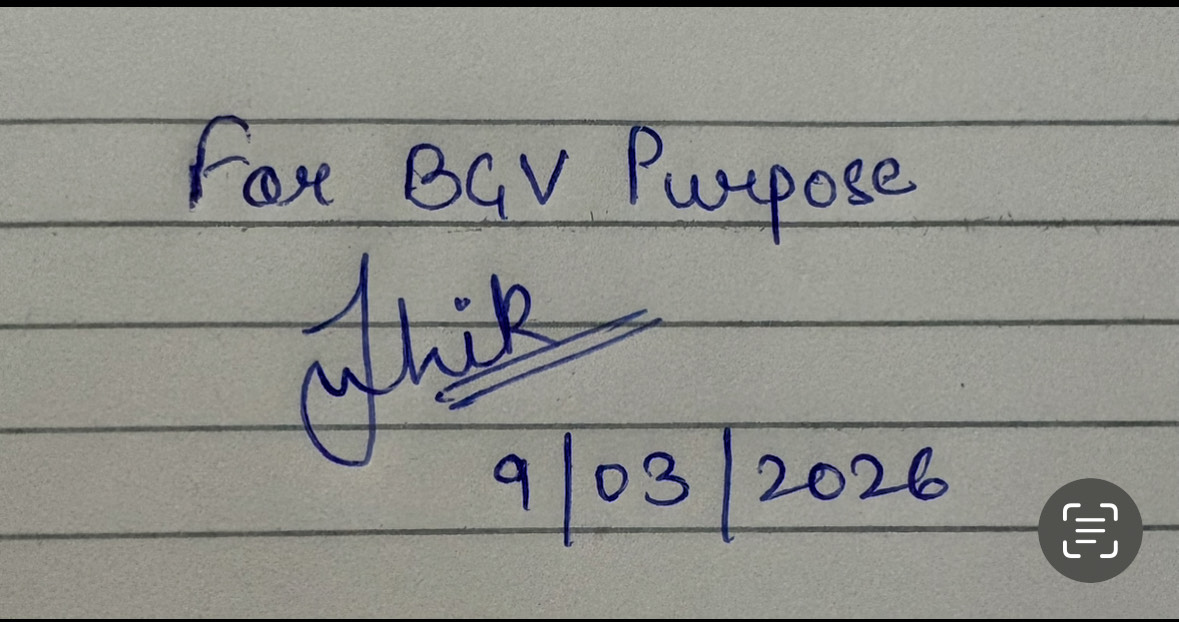 For BGV Purpose
9/03/2026